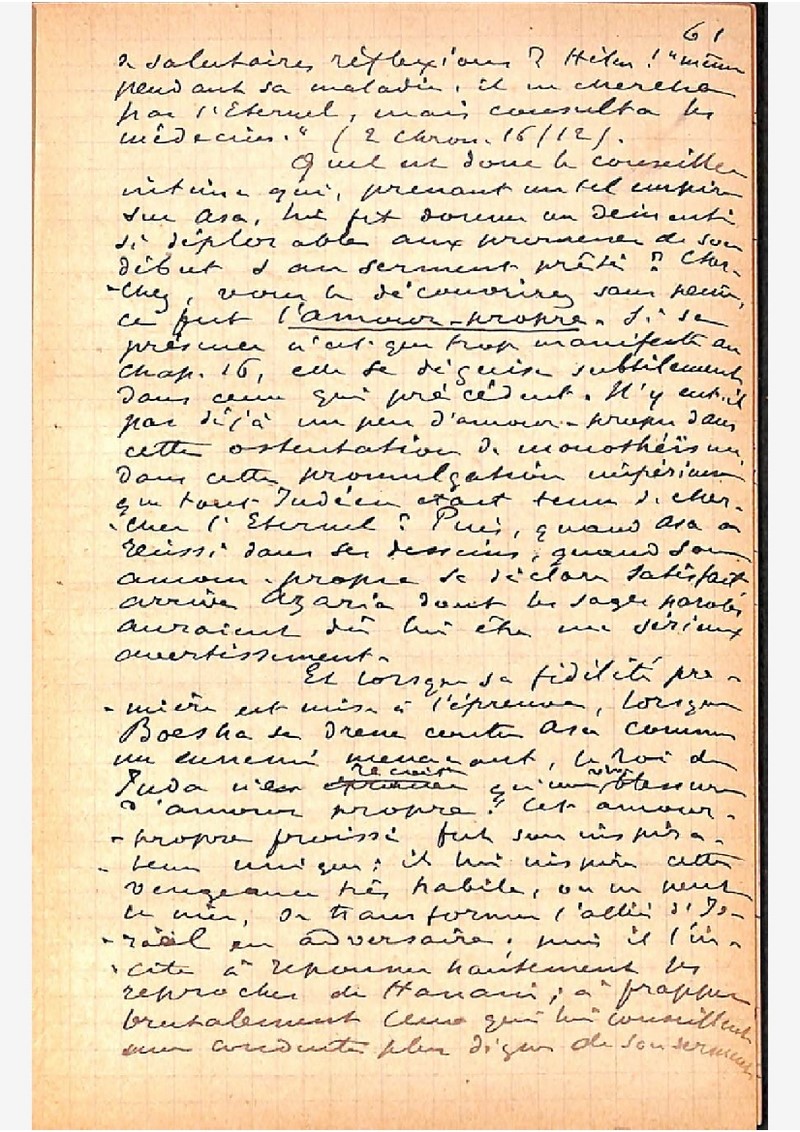 61
de salutaires réflexions ? Hélas ! "même
pendant sa maladie, il ne chercha
pas l'Eternel, mais consulta les
médecins." (2 Chron. 16/12).
Quel est donc le conseiller
intime qui, prenant un tel empire
sur Asa, lui fit donner un démenti
si déplorable aux promesses de son
début & au serment prêté ? Cher-
-chez, vous le découvrirez sans peine,
ce fut l'amour-propre. Si sa
présence n'est que trop manifeste au
chap. 16, elle se déguise subtilement
dans ceux qui précèdent. N'y eut-il
pas déjà un peu d'amour-propre dans
cette ostentation de monothéisme,
dans cette promulgation
que tout Judéen était tenu de cher-
-cher l'Eternel ? Puis, quand Asa a
réussi dans ses desseins, quand son
amour-propre se déclare satisfait
arrive Azaria dont les sages paroles
auraient dû lui être un sérieux
avertissement.
Et lorsque sa fidélité pre-
-mière est mise à l'épreuve, lorsque
Boesha se dresse contre Asa comme
un ennemi menaçant, le roi de
Juda n'en reçoit qu'une vive blessure
d'amour propre. Cet amour-
-propre froissé fut son inspira-
-teur unique ; il lui inspire cette
vengeance très habile, on ne peut
le nier, de transformer l'allié d'Is-
-raël en adversaire, puis il l'in-
-cite à repousser hautement les
reproches de Hanani ; à frapper
brutalement ceux qui lui conseillent
une conduite plus digne de son serment